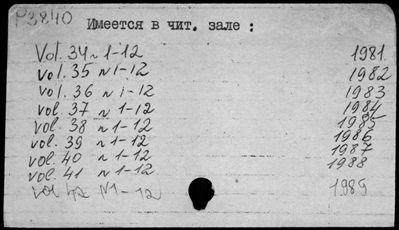 P3840
Имеется в чит. зале :
Vol. 34 N 1-12 1981
vol. 35 N 1-12 1982
vol. 36 N 1-12 1983
vol. 37 N 1-12 1984
vol. 38 N 1-12 1985
vol. 39 N 1-12 1986
vol. 40 N 1-12 1987
vol. 41 N 1-12 1988
vol 42 N1-12 1989